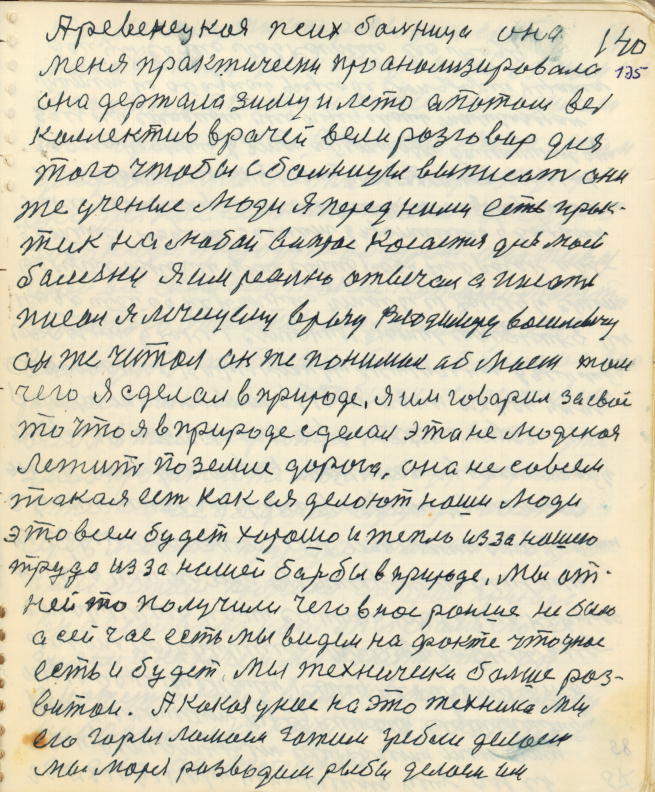 Аревенецкая псих болница она
140
меня практически проанализировала
175
она держала зиму и лето а потом вел
коллектив врачей вели разговар для
того чтобы с болницы выписат они
же ученые люди я перед ними есть прак-
тик на любой вопрос косается для моей
болезни я им реално отвечал а писат
писал я лечущему врачу Владимиру василичу
он же читал он же понимал об моем том
чего я сделал в природе, я им говорил за свой
то что я в природе сделал эта не людская
лежит по земле дорога, она не совсем
такая ест как ея делоют наши люди
это всем будет хорошо и тепло из за нашего
труда из за нашей барбы в природе, мы от
ней то получили чего в нос ранше не было
а сей час есть мы видем на факте что у нос
есть и будет, мы технически болше роз-
витои. А какая у нос на это техника мы
его горы ламаем гожим гребли делоем
мы моря разводим рыбы делоем им